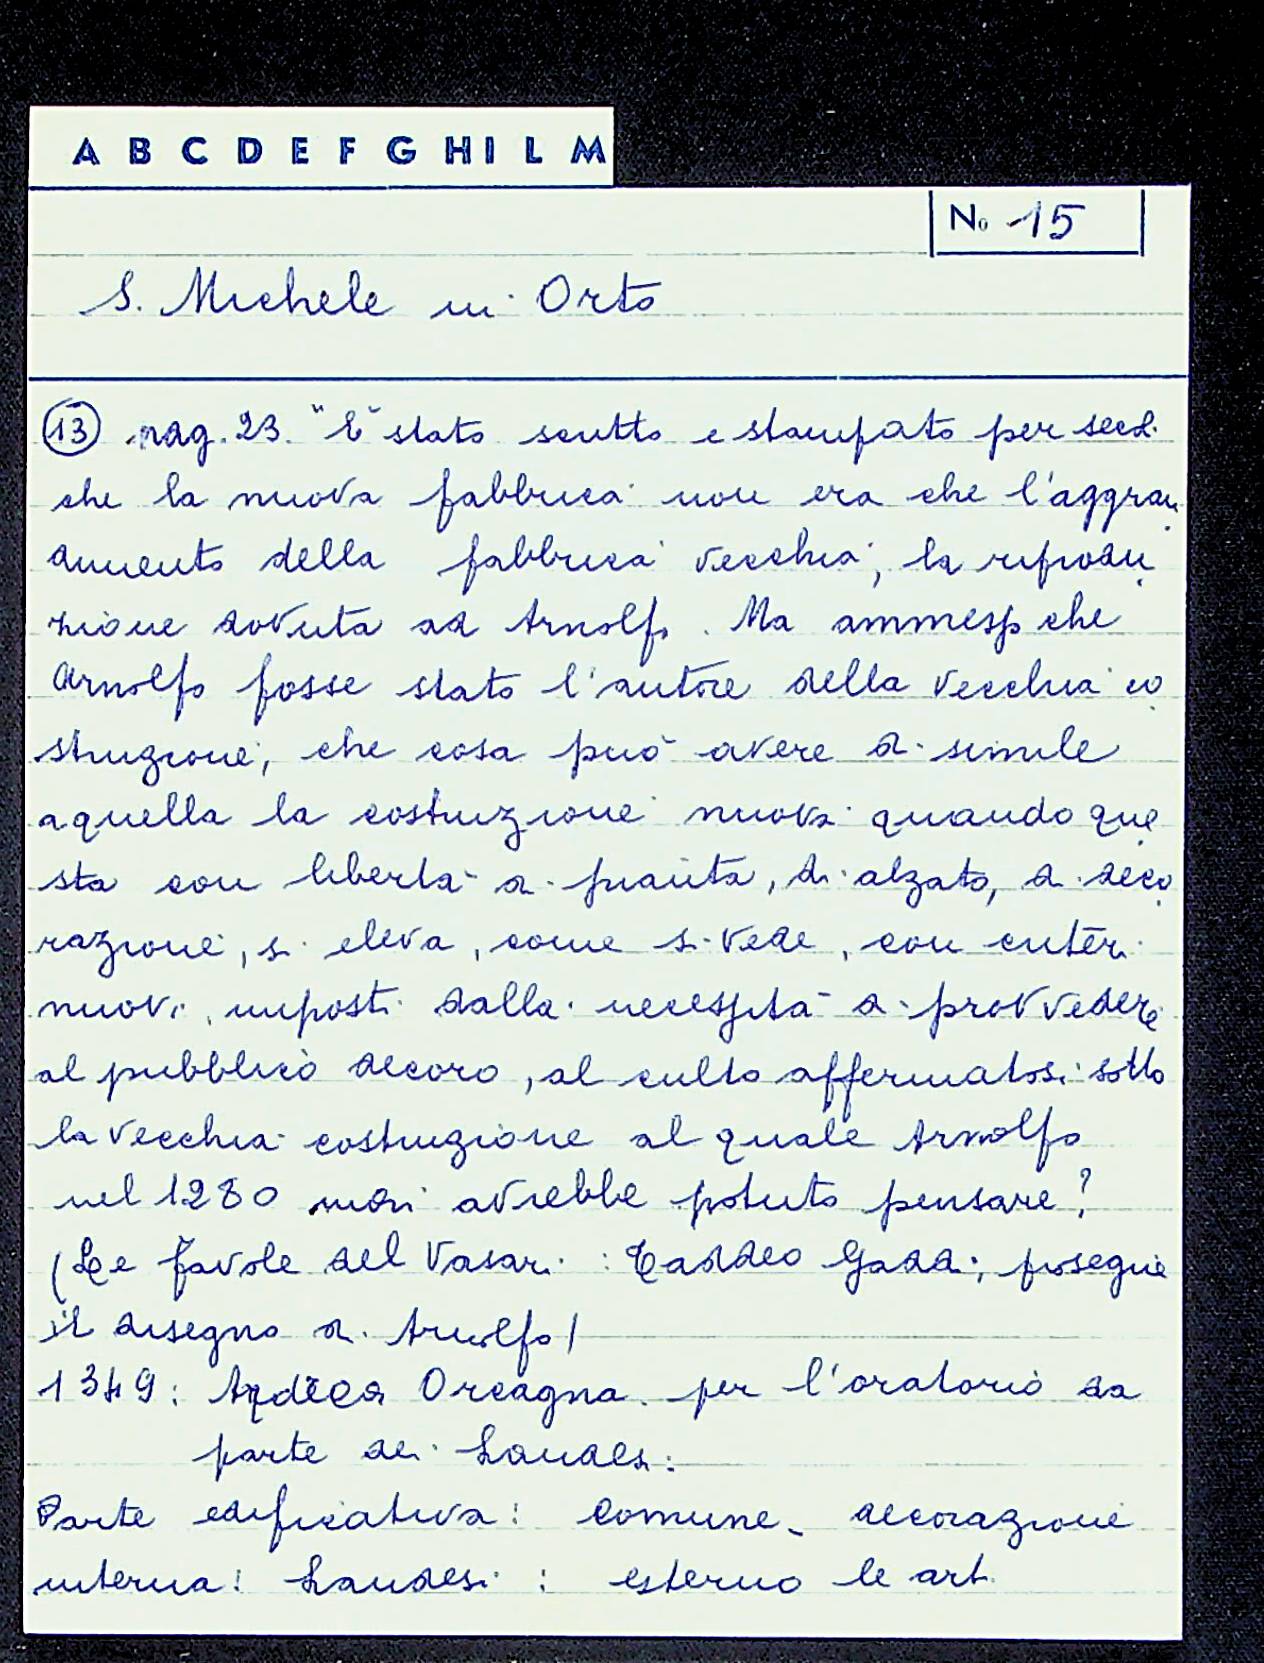 A B C D E F G H I L M
No 15
S. Michele in Orto
(13) pag. 23. "E' stato scritto e stampato per secoli
che la nuova fabbrica non era che l'aggran
dimento della fabbrica vecchia, la riprodu
zione dovuta ad Arnolfo. Ma ammesso che
Arnolfo fosse stato l'autore della vecchia co
struzione, che cosa può avere di simile
a quella la costruzione nuova quando que
sta con libertà di pianta, di alzato, di deco
razione, si eleva, come si vede, con criteri
nuovi, imposti dalla necessità di provvedere
al pubblico decoro, al culto affermatosi sotto
la vecchia costruzione al quale Arnolfo
nel 1280 mai avrebbe potuto pensare?
(Le favole del Vasari: Taddeo Gaddi, prosegue
il disegno di Arnolfo)
1349: Andrea Orcagna per l'oratorio da
parte dei Laudesi:
Parte edificativa: Comune - decorazione
interna: Laudesi: esterno le arti